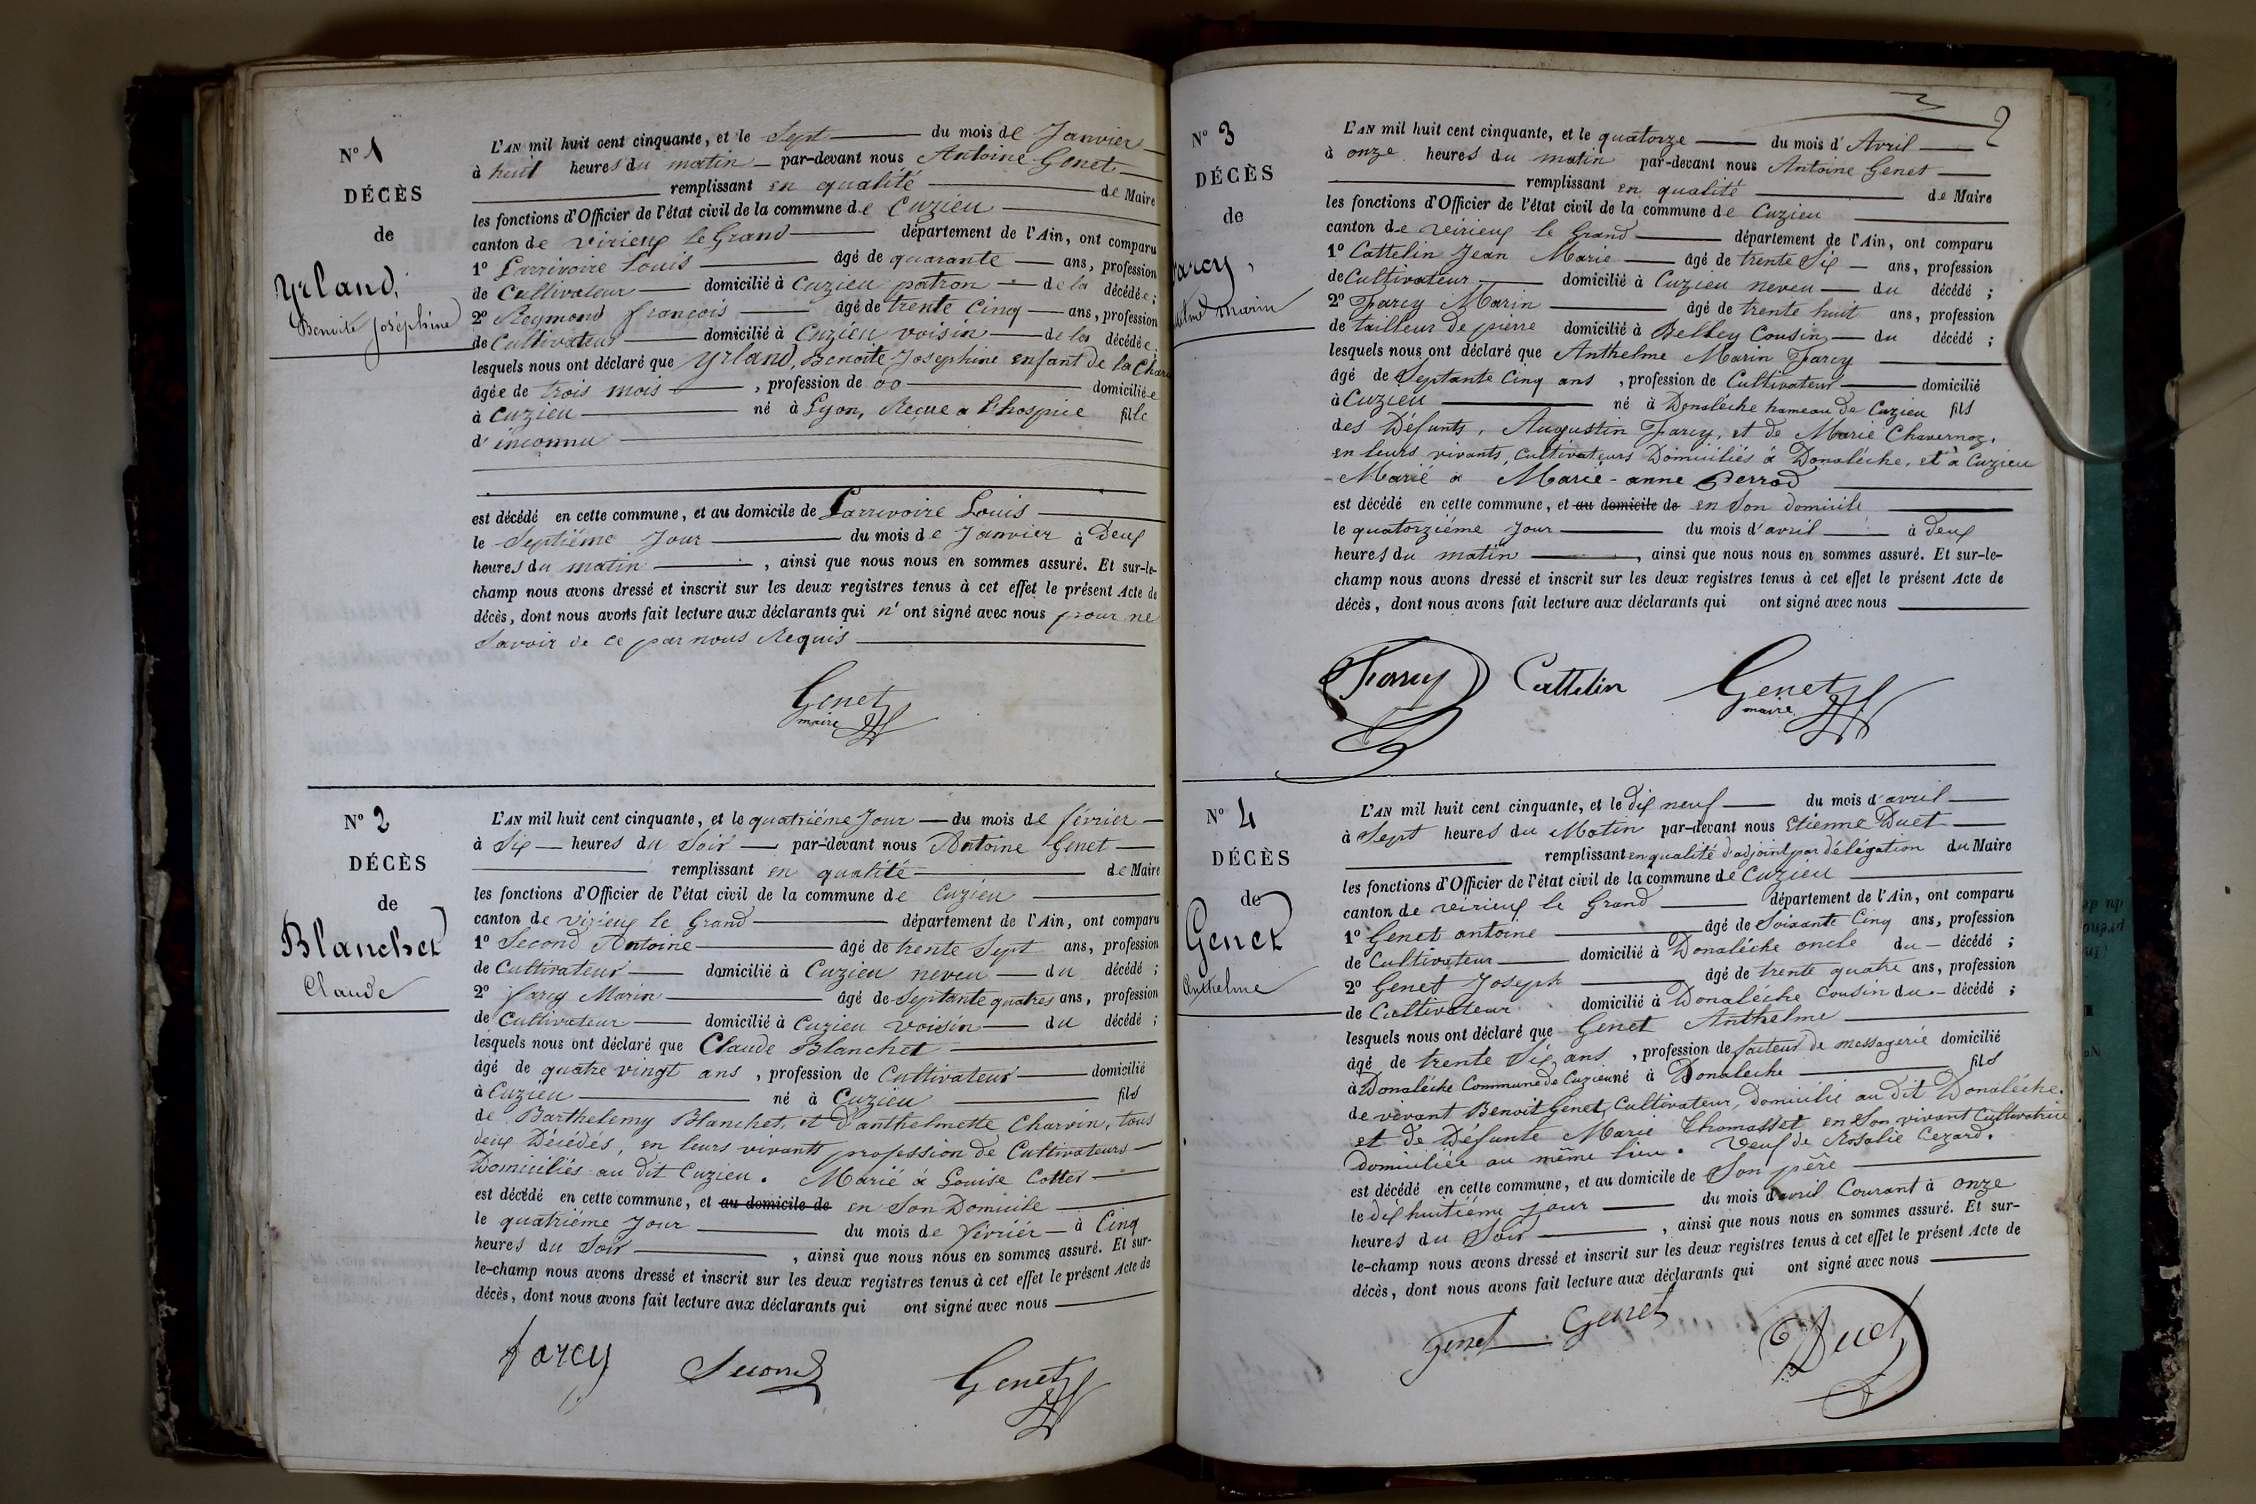 N° 1
DÉCÈS
de
Yrland,
Benoite Joséphine
L'AN mil huit cent cinquante, et le Sept du mois de Janvier
à huit heures du matin par-devant nous Antoine Genet
remplissant en qualité de Maire
les fonctions d'Officier de l'état civil de la commune de Cuzieu
canton de virieux le Grand département de l'Ain, ont comparu
1° Larrivoire Louis âgé de quarante ans, profession
de Cultivateur domicilié à Cuzieu patron de la décédée;
2° Reymond françois âgé de trente Cinq ans, profession
de Cultivateur domicilié à Cuzieu voisin de la décédée.
lesquels nous ont déclaré que Yrland, Benoite Josephine enfant de la
âgée de trois mois, profession de 00 domiciliée
à Cuzieu né à Lyon, Reçue a l'hospice fille
d'inconnu
est décédé en cette commune, et au domicile de Larrivoire Louis
le Septiéme Jour du mois de Janvier à Deux
heures du matin, ainsi que nous nous en sommes assuré. Et sur-le-
champ nous avons dressé et inscrit sur les deux registres tenus à cet effet le présent Acte de
décès, dont nous avons fait lecture aux déclarants qui n'ont signé avec nous pour ne
Savoir de ce par nous Requis
Genet
maire
N° 2
DÉCÈS
de
Blanchet
Claude
L'AN mil huit cent cinquante, et le quatriéme Jour du mois de février
à Six heures du Soir par-devant nous Antoine Genet
remplissant en qualité de Maire
les fonctions d'Officier de l'état civil de la commune de Cuzieu
canton de virieux le Grand département de l'Ain, ont comparu
1° Second Antoine âgé de trente Sept ans, profession
de Cultivateur domicilié à Cuzieu neveu du décédé;
2° farcy Marin âgé de Septante quatres ans, profession
de Cultivateur domicilié à Cuzieu voisin du décédé;
lesquels nous ont déclaré que Claude Blanchet
âgé de quatre vingt ans, profession de Cultivateur domicilié
à Cuzieu né à Cuzieu fils
de Barthelemy Blanchet, et d'anthelmette Charvin, tous
deux Décédés, en leurs vivants profession de Cultivateurs
Domiciliés au dit Cuzieu. Marié à Louise Cottet
est décédé en cette commune, et au domicile de en Son Domicile
le quatriéme Jour du mois de février à Cinq
heures du Soir, ainsi que nous nous en sommes assuré. Et sur-
le-champ nous avons dressé et inscrit sur les deux registres tenus à cet effet le présent Acte de
décès, dont nous avons fait lecture aux déclarants qui ont signé avec nous
farcy Second Genet
2
N° 3
DÉCÈS
de
farcy,
marin
L'AN mil huit cent cinquante, et le quatorze du mois d'Avril
à onze heures du matin par-devant nous Antoine Genet
remplissant en qualité de Maire
les fonctions d'Officier de l'état civil de la commune de Cuzieu
canton de virieux le Grand département de l'Ain, ont comparu
1° Cattelin Jean Marie âgé de trente Six ans, profession
de Cultivateur domicilié à Cuzieu neveu du décédé;
2° Farcy Marin âgé de trente huit ans, profession
de tailleur de pierre domicilié à Belley Cousin du décédé;
lesquels nous ont déclaré que Anthelme Marin Farcy
âgé de Septante Cinq ans, profession de Cultivateur domicilié
à Cuzieu né à Donaléche hameau de Cuzieu fils
des Défunts, Augustin Farcy, et de Marie Chavernoz,
en leurs vivants, Cultivateurs Domiciliés à Donaléche, et à Cuzieu
Marié à Marie-anne Perrod
est décédé en cette commune, et au domicile de en Son domicile
le quatorziéme Jour du mois d'avril à deux
heures du matin, ainsi que nous nous en sommes assuré. Et sur-le-
champ nous avons dressé et inscrit sur les deux registres tenus à cet effet le présent Acte de
décès, dont nous avons fait lecture aux déclarants qui ont signé avec nous
Farcy Cattelin Genet
maire
N° 4
DÉCÈS
de
Genet
Anthelme
L'AN mil huit cent cinquante, et le dix neuf du mois d'avril
à Sept heures du Matin par-devant nous Etienne Duet
remplissant en qualité d'adjoint par délégation du Maire
les fonctions d'Officier de l'état civil de la commune de Cuzieu
canton de virieux le Grand département de l'Ain, ont comparu
1° Genet antoine âgé de Soixante Cinq ans, profession
de Cultivateur domicilié à Donaléche oncle du décédé;
2° Genet Joseph âgé de trente quatre ans, profession
de Cultivateur domicilié à Donaléche Cousin du décédé;
lesquels nous ont déclaré que Genet Anthelme
âgé de trente Six ans, profession de facteur de messagerie domicilié
à Donaléche Commune de Cuzieu né à Donaleche fils
de vivant Benoit Genet, Cultivateur, domicilié au dit Donaléche.
et de Défunte Marie Thomasset en Son vivant Cultivatrice
domiciliée au même lieu. Veuf de Rosalie Cezard.
est décédé en cette commune, et au domicile de Son père
le dix huitiéme jour du mois d'avril Courant à onze
heures du Soir, ainsi que nous nous en sommes assuré. Et sur-
le-champ nous avons dressé et inscrit sur les deux registres tenus à cet effet le présent Acte de
décès, dont nous avons fait lecture aux déclarants qui ont signé avec nous
Genet Genet Duet